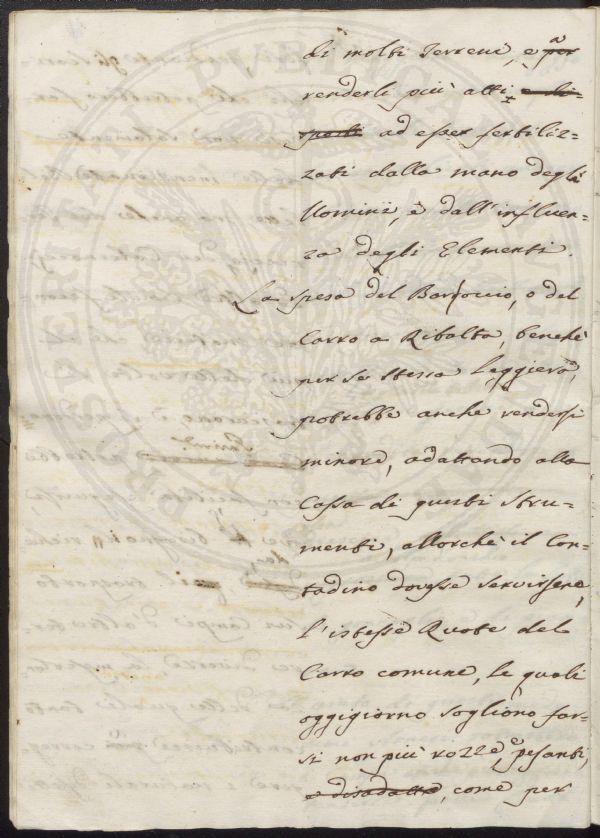 di molti Terreni, e per a
renderli più atti e di-
sposti ad esser fertiliz-
zati dalla mano degli
Uomini, e dall'influen-
za degli Elementi.
La spesa del Baroccio, o del
Carro a Ribalta, benchè
per se stessa leggiera,
potrebbe anche rendersi
minore, adattando alla
Cassa di questi stru-
menti, allorchè il Con-
tadino dovesse servirsene,
l'istesse Ruote del
Carro comune, le quali
oggigiorno sogliono far-
si non più rozze, e pesanti,
e disadatte, come per